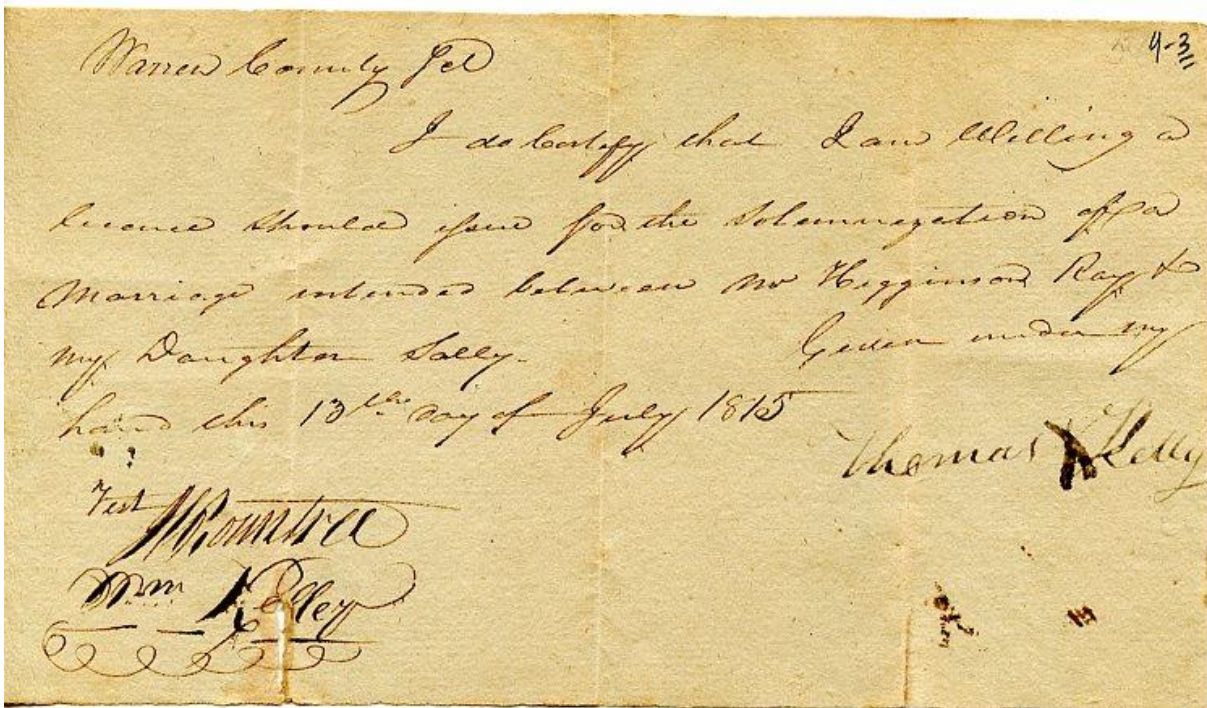 4-3
Warren County Sct
I do Certify that I am Willing a
licence should issue for the Solemnization of a
Marriage intended between Mr Higginson Ray &
my Daughter Sally. Given under my
hand this 13th day of July 1815
Thomas Kelly
Test
Rountree
Wm Kelley